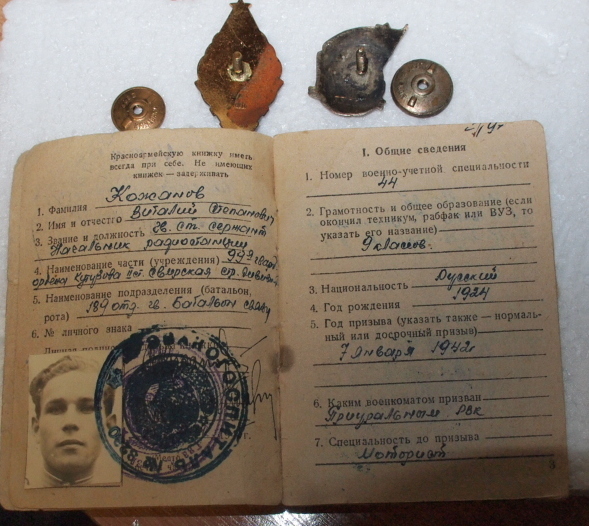 Красноармейскую книжку иметь
всегда при себе. Не имеющих
книжек — задерживать
1. Фамилия Кожанов
2. Имя и отчество Виталий Степанович
3. Звание и должность Гв. ст. сержант
Начальник радиостанции
4. Наименование части (учреждения) 99ᵒ гвард
ордена Кутузова IIст. Свирская стр. дивизия
5. Наименование подразделения (батальон,
рота) 189 отд. гв. батальон связи
6. № личного знака
I. Общие сведения
1. Номер военно-учетной специальности
44
2. Грамотность и общее образование (если
окончил техникум, рабфак или ВУЗ, то
указать его название)
9 классов.
3. Национальность Русский
4. Год рождения 1924
5. Год призыва (указать также — нормаль-
ный или досрочный призыв)
7 января 1942г
6. Каким военкоматом призван
Приуральным РВК
7. Специальность до призыва
Моторист
3